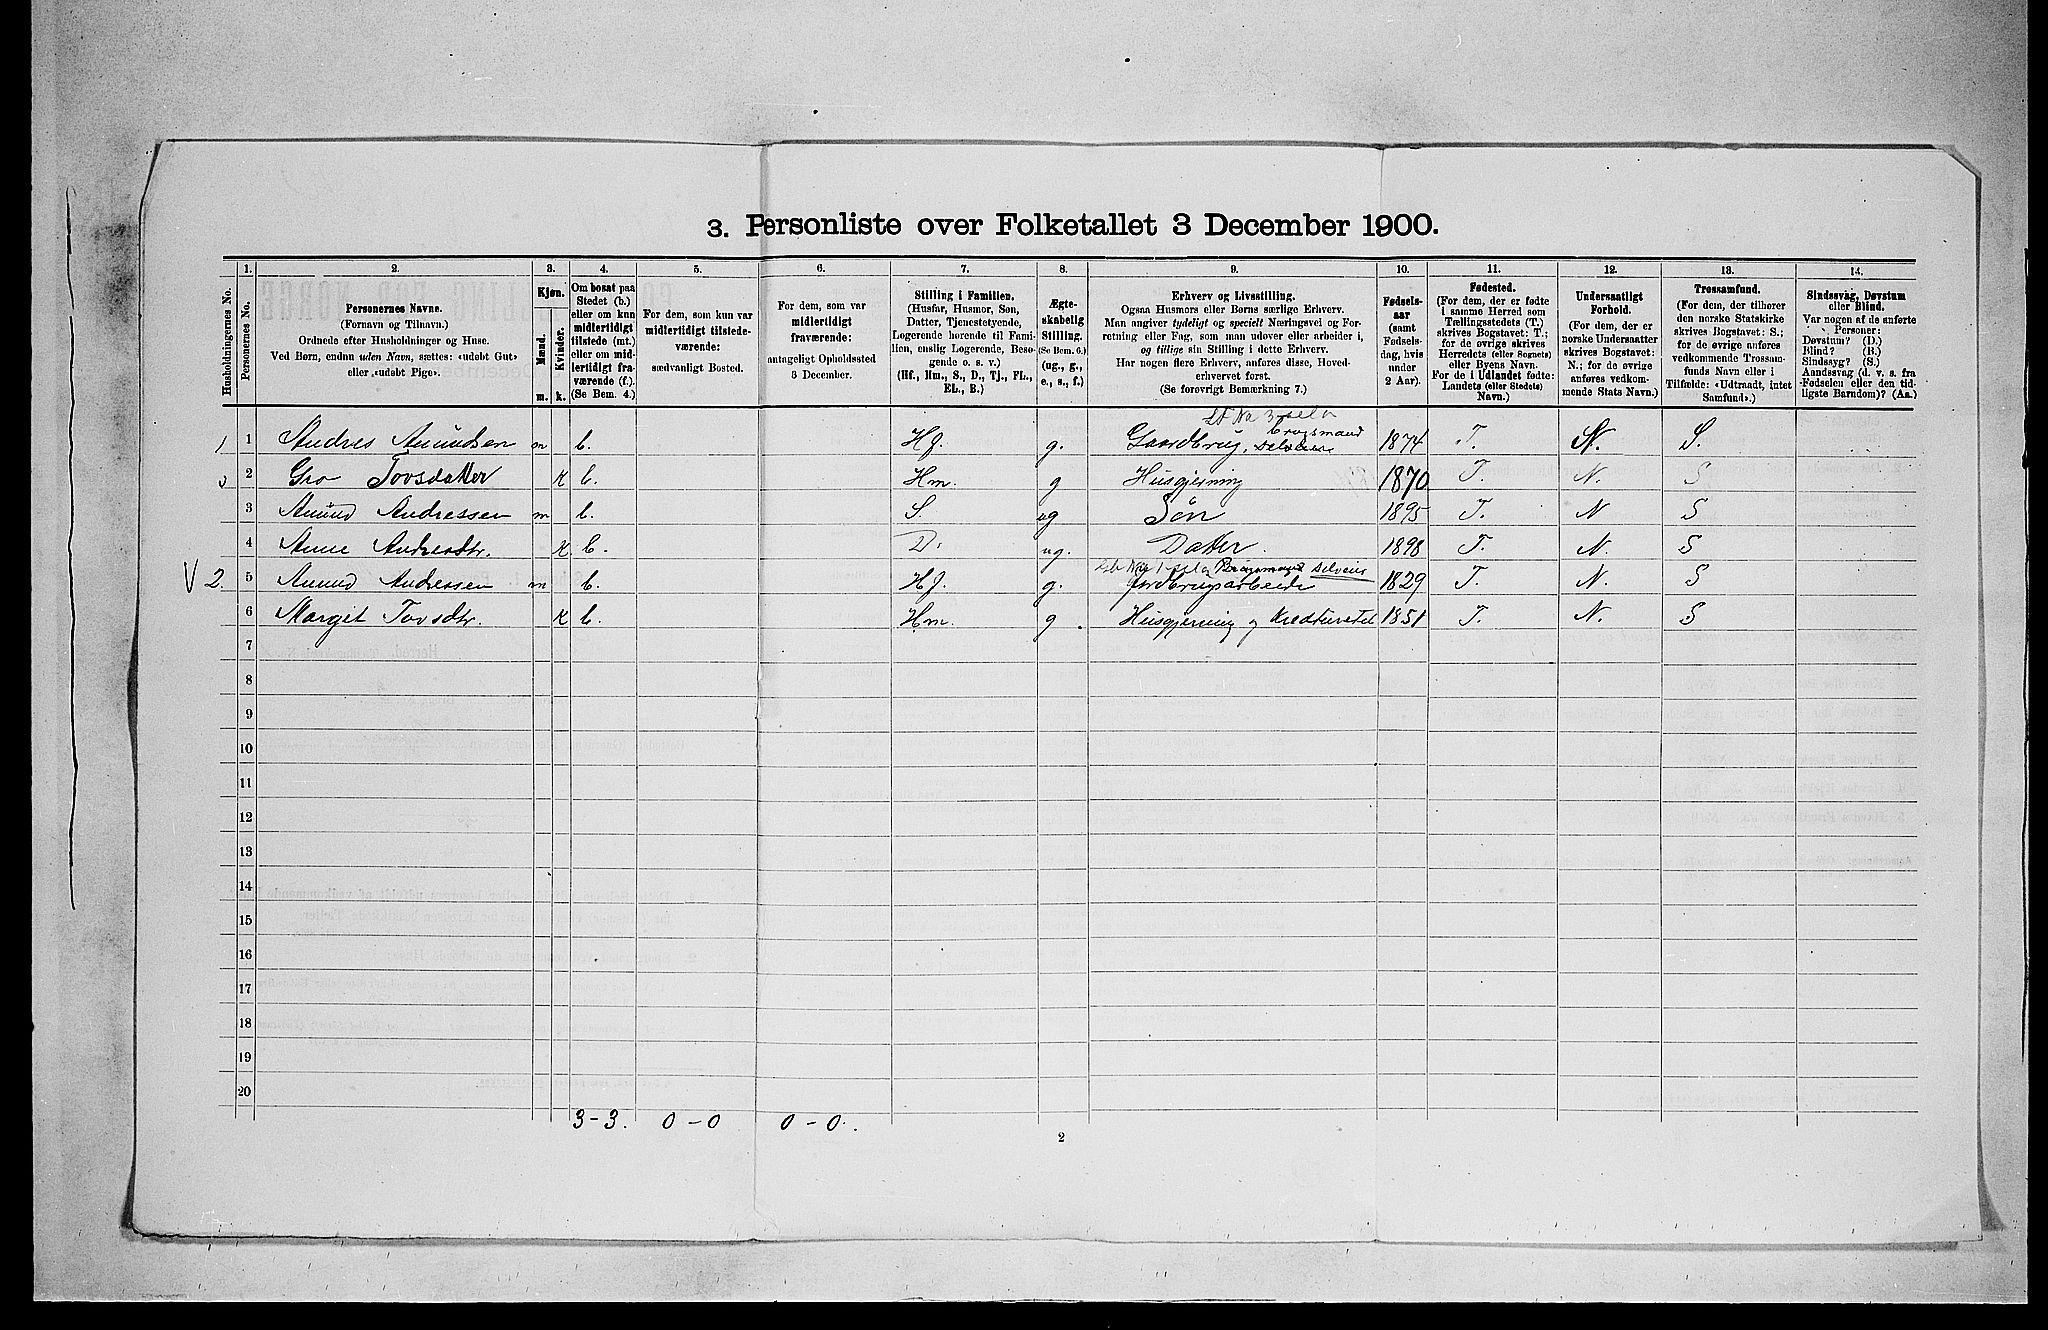 3. Personliste over Folketallet 3 December 1900.
Husholdningernes No.
1.
Personernes No.
2.
Personernes Navne.
(Fornavn og Tilnavn.)
Ordnede efter Husholdninger og Huse.
Ved Børn, endnu uden Navn, sættes: «udøbt Gut»
eller «udøbt Pige».
3.
Kjøn.
Mænd.
Kvinder.
m. k.
4.
Om bosat paa
Stedet (b.)
eller om kun
midlertidigt
tilstede (mt.)
eller om mid-
lertidigt fra-
værende (f.).
(Se Bem. 4.)
5.
For dem, som kun var
midlertidigt tilstede-
værende:
sædvanligt Bosted.
6.
For dem, som var
midlertidigt
fraværende:
antageligt Opholdssted
3 December.
7.
Stilling i Familien.
(Husfar, Husmor, Søn,
Datter, Tjenestetyende,
Logerende hørende til Fami-
lien, enslig Logerende, Besø-
gende o. s. v.)
(Hf., Hm., S., D., Tj., FL.,
EL., B.)
8.
Ægte-
skabelig
Stilling.
(Se Bem. 6.)
(ug., g.,
e., s., f.)
9.
Erhverv og Livsstilling.
Ogsaa Husmors eller Børns særlige Erhverv.
Man angiver tydeligt og specielt Næringsvei og For-
retning eller Fag, som man udover eller arbeider i,
og tillige sin Stilling i dette Erhverv.
Har nogen flere Erhverv, anføres disse, Hoved-
erhvervet først.
(Se forøvrigt Bemærkning 7.)
10.
Fødsels-
aar
(samt
Fødsels-
dag, hvis
under
2 Aar).
11.
Fødested.
(For dem, der er fødte
i samme Herred som
Tællingsstedets (T.)
skrives Bogstavet: T.;
for de øvrige skrives
Herredets (eller Sognets)
eller Byens Navn.
For de i Udlandet fødte:
Landets (eller Stedets)
Navn.)
12.
Undersaatligt
Forhold.
(For dem, der er
norske Undersaatter
skrives Bogstavet:
N.; for de øvrige
anføres vedkom-
mende Stats Navn.)
13.
Trossamfund.
(For dem, der tilhører
den norske Statskirke
skrives Bogstavet: S.;
for de øvrige anføres
vedkommende Trossam-
funds Navn eller i
Tilfælde: «Udtraadt, intet
Samfund».)
14.
Sindssvag, Døvstum
eller Blind.
Var nogen af de anførte
Personer:
Døvstum? (D.)
Blind? (B.)
Sindssyg? (S.)
Aandssvag (d. v. s. fra
Fødselen eller den tid-
ligste Barndom)? (Aa.)
1 1 Andres Amundsen m b. Hf. g. Gaardbrug, brugsmand 1874 T. N. S.
2 Gro Tovsdatter K b. Hm. g Husgjerning 1870 T. N. S
3 Amund Andressen m b. S. ug Søn 1895 T. N S
4 Anne Andresdtr. K b. D. ug. Datter. 1898 T. N. S
V 2. 5 Amund Andressen m b. Hf. g. Jordbrugsarbeide 1829 T. N. S
6 Margit Tovsdtr. K b. Hm. g. Husgjerning og Kreaturstel 1851 T. N. S
7
8
9
10
11
12
13
14
15
16
17
18
19
20
3-3. 0-0 0-0.
2